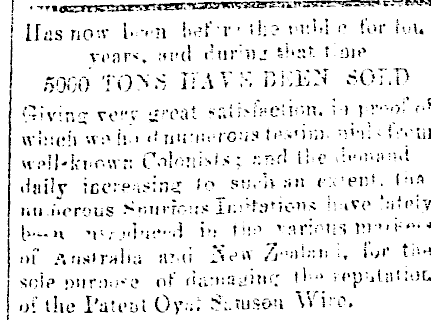 Has now been before the public for four
years, and during that time
5000 TONS HAVE BEEN SOLD
Giving very great satisfaction, in proof of
which we hold numerous testimonials from
well-known Colonists; and the demand
daily increasing to such an extent, tha
numerous Spurious Imitations have lately
been introduced in the various markets
of Australia and New Zealand, for the
sole purpose of damaging the reputation
of the Patent Oval Samson Wire.